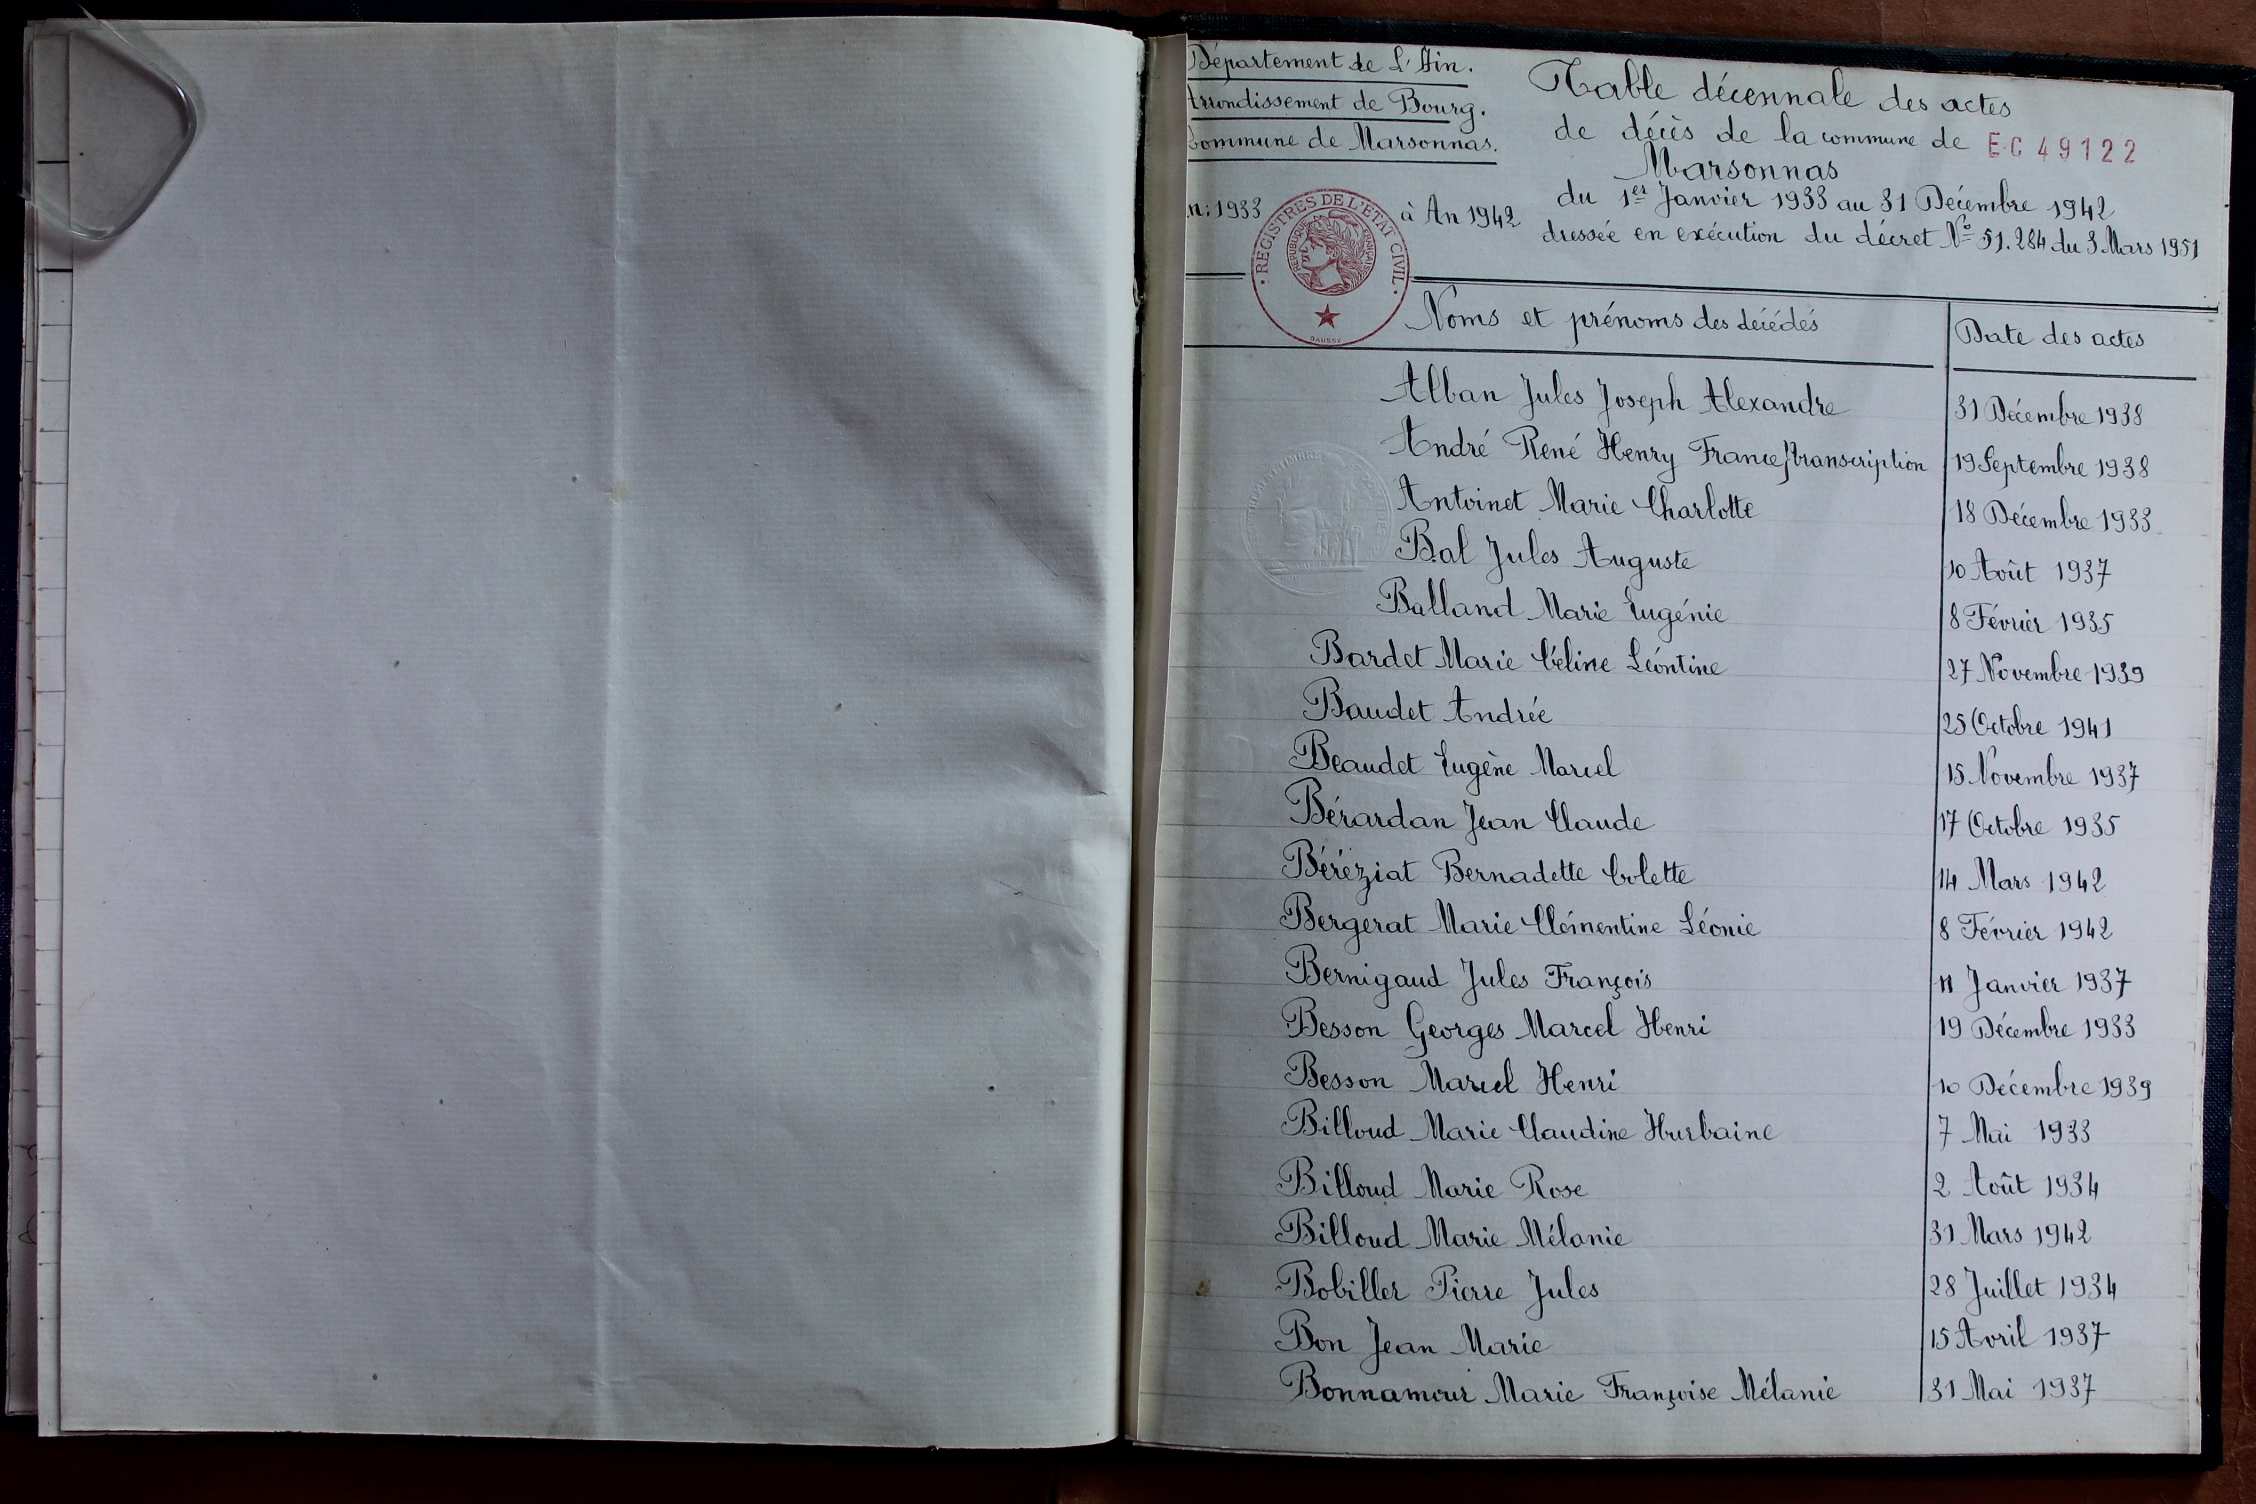 Département de L'Ain.
Arrondissement de Bourg.
Commune de Marsonnas.
n: 1933 à An 1942
REGISTRES DE L'ETAT CIVIL
REPUBLIQUE FRANÇAISE
Table décennale des actes
de décès de la commune de EC 49122
Marsonnas
du 1er Janvier 1933 au 31 Décembre 1942
dressée en exécution du décret No 51.284 du 3 Mars 1951
Noms et prénoms des décédés Date des actes
Alban Jules Joseph Alexandre 31 Décembre 1938
André René Henry France/transcription 19 Septembre 1938
Antoinet Marie Charlotte 18 Décembre 1933
Bal Jules Auguste 10 Août 1937
Balland Marie Eugénie 8 Février 1935
Bardet Marie Céline Léontine 27 Novembre 1939
Baudet Andrée 25 Octobre 1941
Beaudet Eugène Marcel 15 Novembre 1937
Bérardan Jean Claude 17 Octobre 1935
Béréziat Bernadette Colette 14 Mars 1942
Bergerat Marie Clémentine Léonie 8 Février 1942
Bernigaud Jules François 11 Janvier 1937
Besson Georges Marcel Henri 19 Décembre 1933
Besson Marcel Henri 10 Décembre 1939
Billoud Marie Claudine Hurbaine 7 Mai 1933
Billoud Marie Rose 2 Août 1934
Billoud Marie Mélanie 31 Mars 1942
Bobiller Pierre Jules 28 Juillet 1934
Bon Jean Marie 15 Avril 1937
Bonnamour Marie Françoise Mélanie 31 Mai 1937